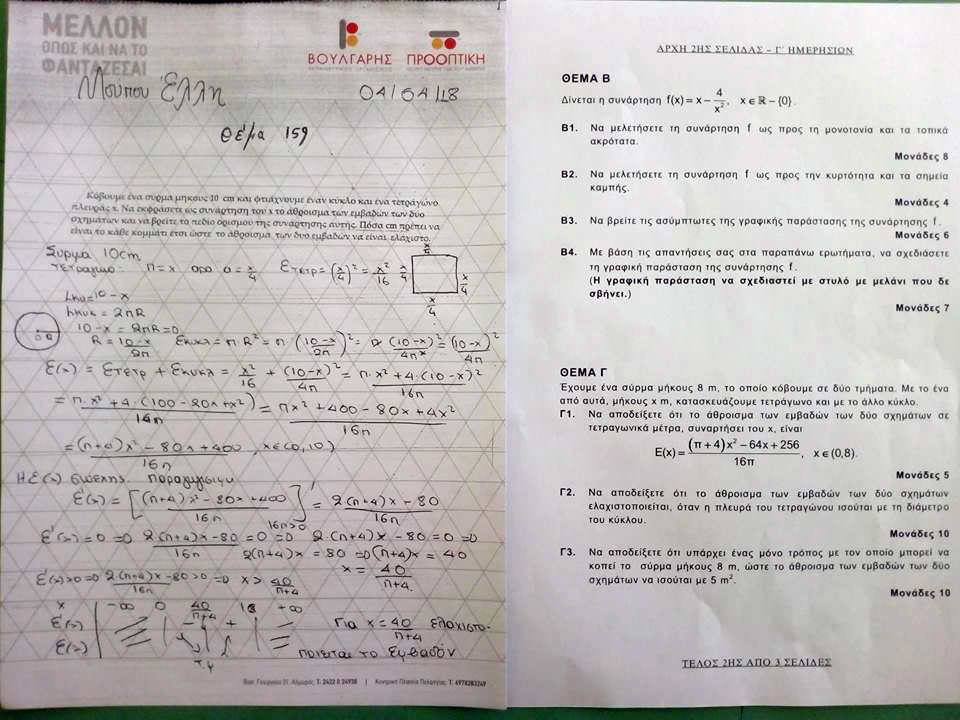 ΜΕΛΛΟΝ
ΟΠΩΣ ΚΑΙ ΝΑ ΤΟ
ΦΑΝΤΑΖΕΣΑΙ
ΒΟΥΛΓΑΡΗΣ ΠΡΟΟΠΤΙΚΗ
Μούπου Έλλη
04/04/18
θέμα 159
Κόβουμε ένα σύρμα μήκους 10 cm και φτιάχνουμε έναν κύκλο και ένα τετράγωνο
πλευράς x. Να εκφράσετε ως συνάρτηση του x το άθροισμα των εμβαδών των δύο
σχημάτων και να βρείτε το πεδίο ορισμού της συνάρτησης αυτής. Πόσα cm πρέπει να
είναι το κάθε κομμάτι έτσι ώστε το άθροισμα των δυο εμβαδών να είναι ελάχιστο.
Σύρμα 10cm
τετράγωνο: Π=x αρα α=x/4 Ετετρ=(x/4)²=x²/16
x/4
x/4 x/4
x/4
Lκυ=10-x
Lκυκ=2πR
10-x=2πR=0
R=10-x/2π Εκυκλ=πR²=π·(10-x/2π)²=π(10-x)²/4π²=(10-x)²/4π
Ε(x)=Ετετρ+Εκυκλ=x²/16+(10-x)²/4π=π·x²+4·(10-x)²/16π
=π·x²+4·(100-20x+x²)/16π=πx²+400-80x+4x²/16π
=(π+4)x²-80x+400/16π, x∈(0,10)
Η Ε(x) συνεχης παραγωγισιμη
Ε'(x)=[(π+4)x²-80x+400/16π]'=2(π+4)x-80/16π
16π>0
Ε'(x)=0=0 2(π+4)x-80/16π=0=0 2(π+4)x-80=0=0
2(π+4)x=80=0(π+4)x=40
x=40/π+4
Ε'(x)>0=0 2(π+4)x-80/16π>0=0 x>40/π+4
x -∞ 0 40/π+4 10 +∞
Ε'(x) - +
Ε(x)
τ.ε
Για x=40/π+4 ελαχιστο-
ποιειται το Εμβαδόν
Βασ. Γεωργίου 21, Αλμυρός Τ: 2422 0 24938 | Κεντρική Πλατεία Πελασγίας Τ. 6978283249
ΑΡΧΗ 2ΗΣ ΣΕΛΙΔΑΣ – Γ΄ ΗΜΕΡΗΣΙΩΝ
ΘΕΜΑ Β
Δίνεται η συνάρτηση f(x)=x-4/x², x∈ℝ-{0}.
Β1. Να μελετήσετε τη συνάρτηση f ως προς τη μονοτονία και τα τοπικά
ακρότατα.
Μονάδες 8
Β2. Να μελετήσετε τη συνάρτηση f ως προς την κυρτότητα και τα σημεία
καμπής.
Μονάδες 4
Β3. Να βρείτε τις ασύμπτωτες της γραφικής παράστασης της συνάρτησης f.
Μονάδες 6
Β4. Με βάση τις απαντήσεις σας στα παραπάνω ερωτήματα, να σχεδιάσετε
τη γραφική παράσταση της συνάρτησης f.
(Η γραφική παράσταση να σχεδιαστεί με στυλό με μελάνι που δε
σβήνει.)
Μονάδες 7
ΘΕΜΑ Γ
Έχουμε ένα σύρμα μήκους 8 m, το οποίο κόβουμε σε δύο τμήματα. Με το ένα
από αυτά, μήκους x m, κατασκευάζουμε τετράγωνο και με το άλλο κύκλο.
Γ1. Να αποδείξετε ότι το άθροισμα των εμβαδών των δύο σχημάτων σε
τετραγωνικά μέτρα, συναρτήσει του x, είναι
E(x)=(π+4)x²-64x+256/16π, x∈(0,8).
Μονάδες 5
Γ2. Να αποδείξετε ότι το άθροισμα των εμβαδών των δύο σχημάτων
ελαχιστοποιείται, όταν η πλευρά του τετραγώνου ισούται με τη διάμετρο
του κύκλου.
Μονάδες 10
Γ3. Να αποδείξετε ότι υπάρχει ένας μόνο τρόπος με τον οποίο μπορεί να
κοπεί το σύρμα μήκους 8 m, ώστε το άθροισμα των εμβαδών των δύο
σχημάτων να ισούται με 5 m².
Μονάδες 10
ΤΕΛΟΣ 2ΗΣ ΑΠΟ 3 ΣΕΛΙΔΕΣ